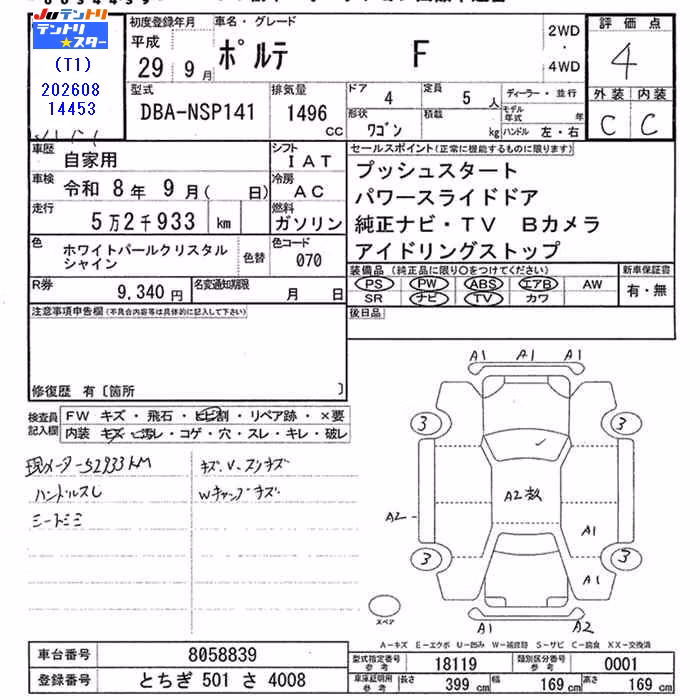 JUテントリ
テントリ★スター
(T1)
202608
14453
初度登録年月 車名・グレード
平成 29 9月 ポルテ F 2WD ・ 4WD
評価点 4
型式 DBA-NSP141
排気量 1496 CC
ドア 4
定員 5人
ディーラー・並行
形状 ワゴン
積載 kg
モデル年式 年
ハンドル 左・右
外装 C
内装 C
車歴 自家用
シフト IAT
車検 令和 8年 9月( 日)
冷房 AC
走行 5万2千933 km
燃料 ガソリン
色 ホワイトパールクリスタルシャイン
色替
色コード 070
R券 9,340円
名変通知期限 月 日
セールスポイント(正常に機能するものに限ります)
プッシュスタート
パワースライドドア
純正ナビ・TV Bカメラ
アイドリングストップ
装備品(純正品に限り○をつけてください)
PS PW ABS エアB AW
SR ナビ TV カワ
新車保証書
有・無
後日品
注意事項申告欄(不具合内容等は具体的に記入して下さい)
修復歴 有〔箇所 〕
検査員記入欄
FW キズ・飛石・ヒビ割・リペア跡・×要
内装 キズ・汚レ・コゲ・穴・スレ・キレ・破レ
現メーター52933KM
ハンドルスレ
キズ、V、スリキズ
A1 A1 A1
3 3
A2
A1
A1
3 3
スペア
A1 A2
A-キズ E-エクボ U-凹み W-補修跡 S-サビ C-腐食 XX-交換済
車台番号 8058839
登録番号 とちぎ 501 さ 4008
型式指定番号 参考 18119
類別区分番号 参考 0001
車庫証明用 参考 長さ 399 cm 幅 169 cm 高さ 169 cm